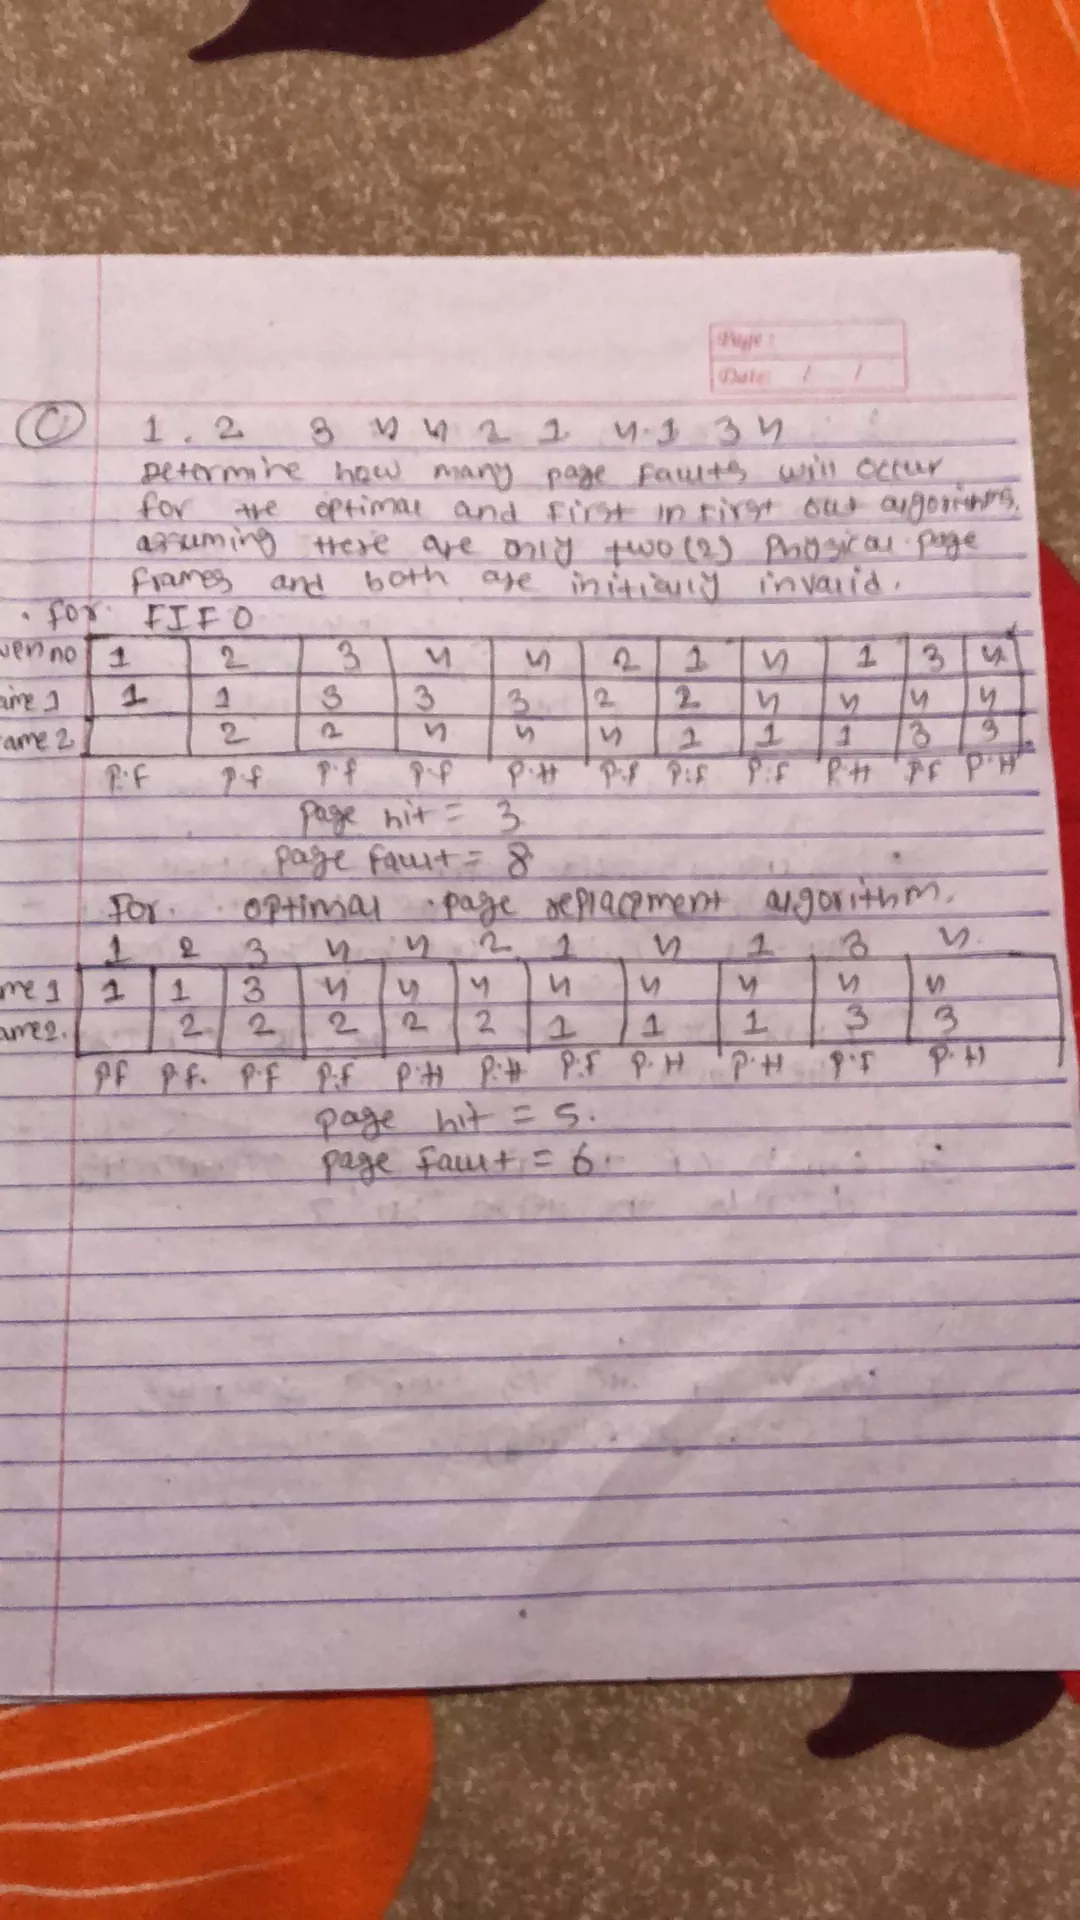 Page :
Date / /
C. 1 . 2 3 4 4 2 1 4.1 3 4
Determine how many page faults will occur
for the optimal and First in First out algorithms.
assuming there are only two (2) physical page
frames and both are initially invalid.
. for FIFO
ven no 1 2 3 4 4 2 1 4 1 3 4
ame 1 1 1 3 3 3 2 2 4 4 4 4
ame 2 2 2 4 4 4 1 1 1 3 3
P.F P.f P.f P.f P.H P.f P.f P.f P.H P.f P.H
Page hit = 3
page fault = 8
For optimal page replacement algorithm.
1 2 3 4 4 2 1 4 1 3 4
me 1 1 1 3 4 4 4 4 4 4 4 4
ame 2. 2 2 2 2 2 1 1 1 3 3
PF P.F. P.F P.f P.H P.H P.f P.H P.H P.f P.H
page hit = 5.
page fault = 6.